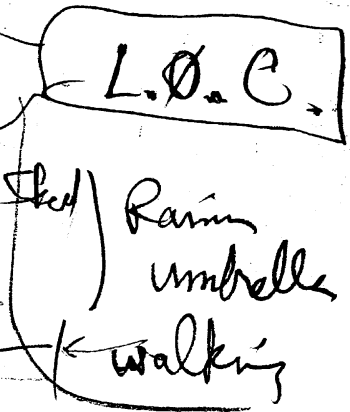 L.Ø.C.
Rain
umbrella
walking